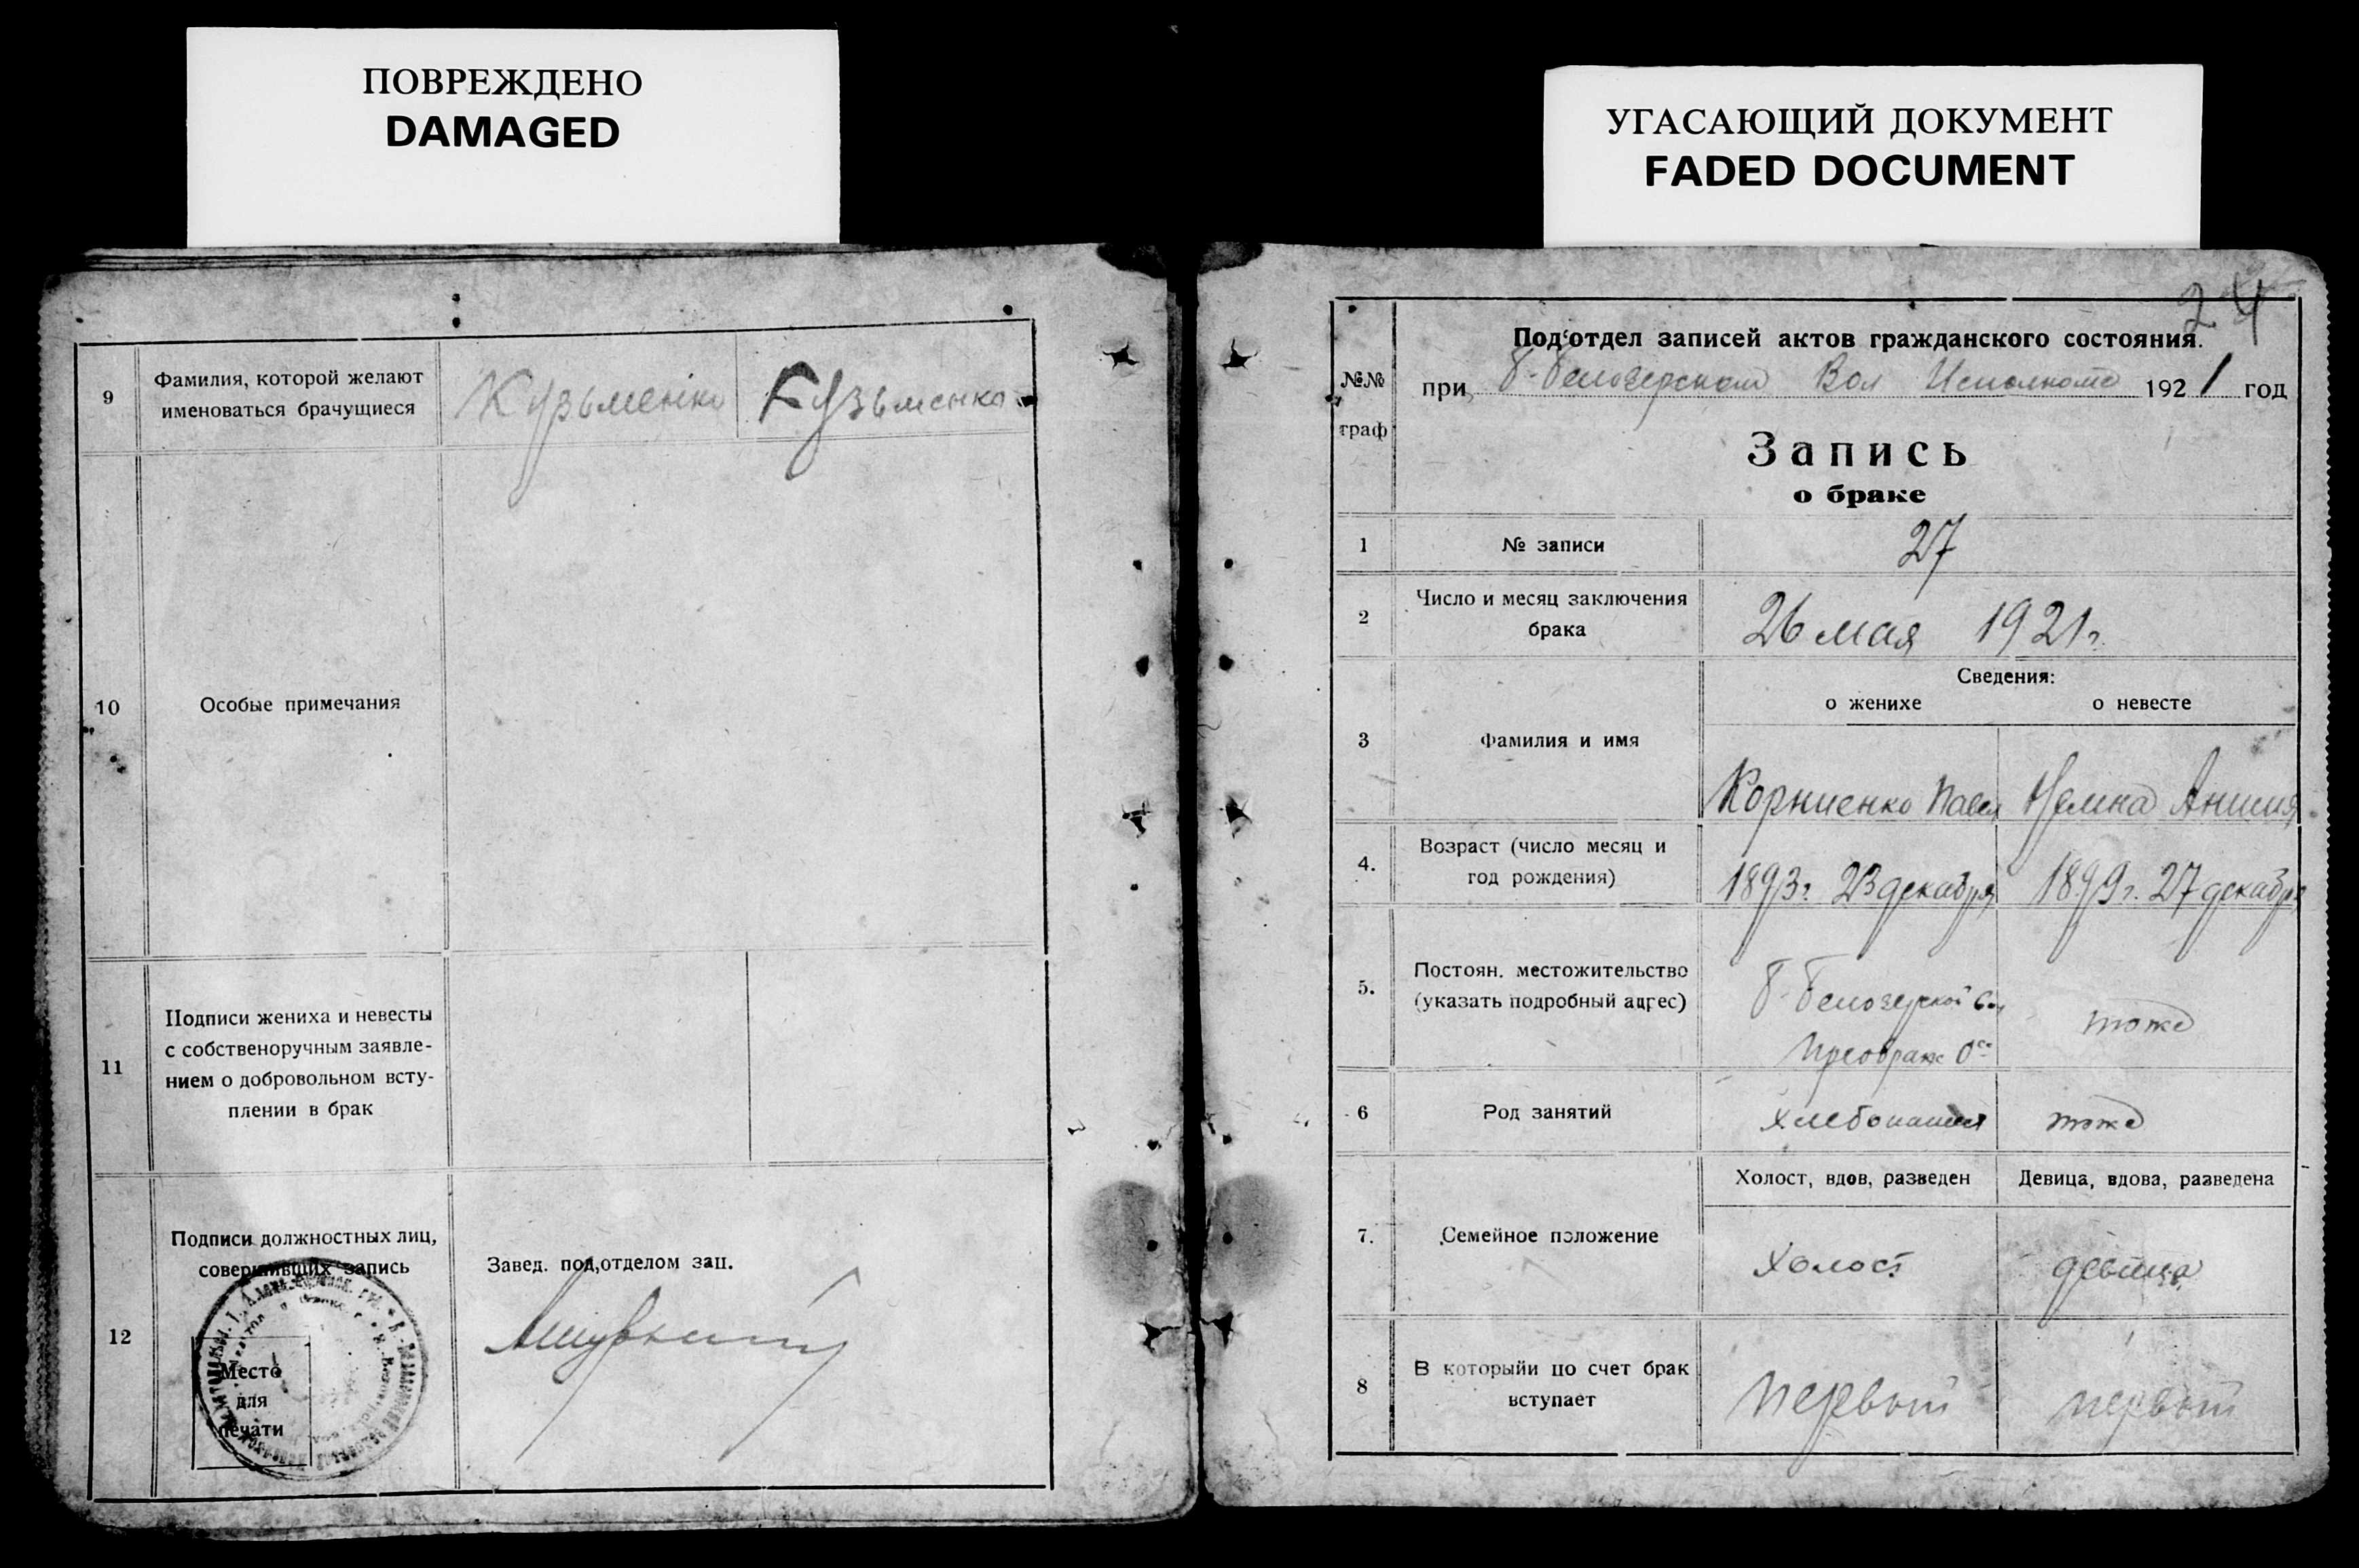 ПОВРЕЖДЕНО
DAMAGED
УГАСАЮЩИЙ ДОКУМЕНТ
FADED DOCUMENT
9
Фамилия, которой желают
именоваться брачущиеся
Кузьменко
Кузьменко
10
Особые примечания
11
Подписи жениха и невесты
с собственоручным заявле-
нием о добровольном всту-
плении в брак
12
Подписи должностных лиц,
совершивших запись
Место
для
печати
Завед. под,отделом зап.
24
№№
граф
Под‘отдел записей актов гражданского состояния.
при Б-Белозерском Вол Исполкоме 1921 год
Запись
о браке
1
№ записи
27
2
Число и месяц заключения
брака
26 мая 1921г.
Сведения:
о женихе
о невесте
3
Фамилия и имя
Корниенко Павел
4.
Возраст (число месяц и
год рождения)
1893г. 23 декабря
1899г. 27 декабря
5.
Постоян. местожительство
(указать подробный адрес)
Б-Белозерской
тоже
6
Род занятий
Хлебопашец
тоже
Холост, вдов, разведен
Девица, вдова, разведена
7.
Семейное положение
Холост
девица
8
В которыйи по счет брак
вступает
первый
первый